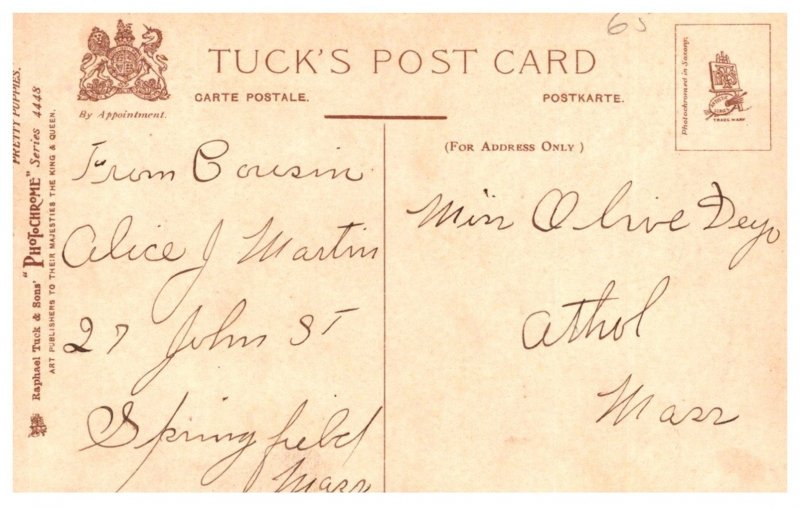 65
TUCK'S POST CARD
CARTE POSTALE. POSTKARTE.
By Appointment.
(FOR ADDRESS ONLY)
Photochromed in Saxony.
TRADE MARK
PRETTY PUPPIES.
Raphael Tuck & Sons' "PHOTOCHROME" Series 4448
ART PUBLISHERS TO THEIR MAJESTIES THE KING & QUEEN.
From Cousin
Alice J Martin
27 John St
Springfield
Mass
Miss Olive Deyo
Athol
Mass